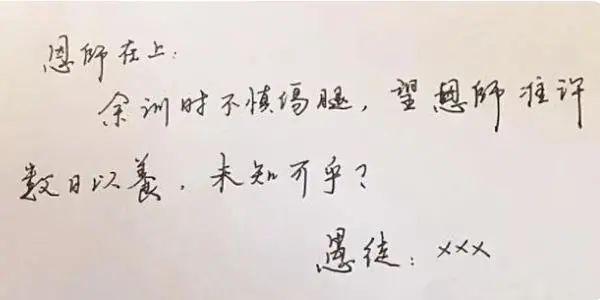 恩师在上：
余训时不慎傷腿，望恩师准许
数日以養，未知可乎？
愚徒：xxx